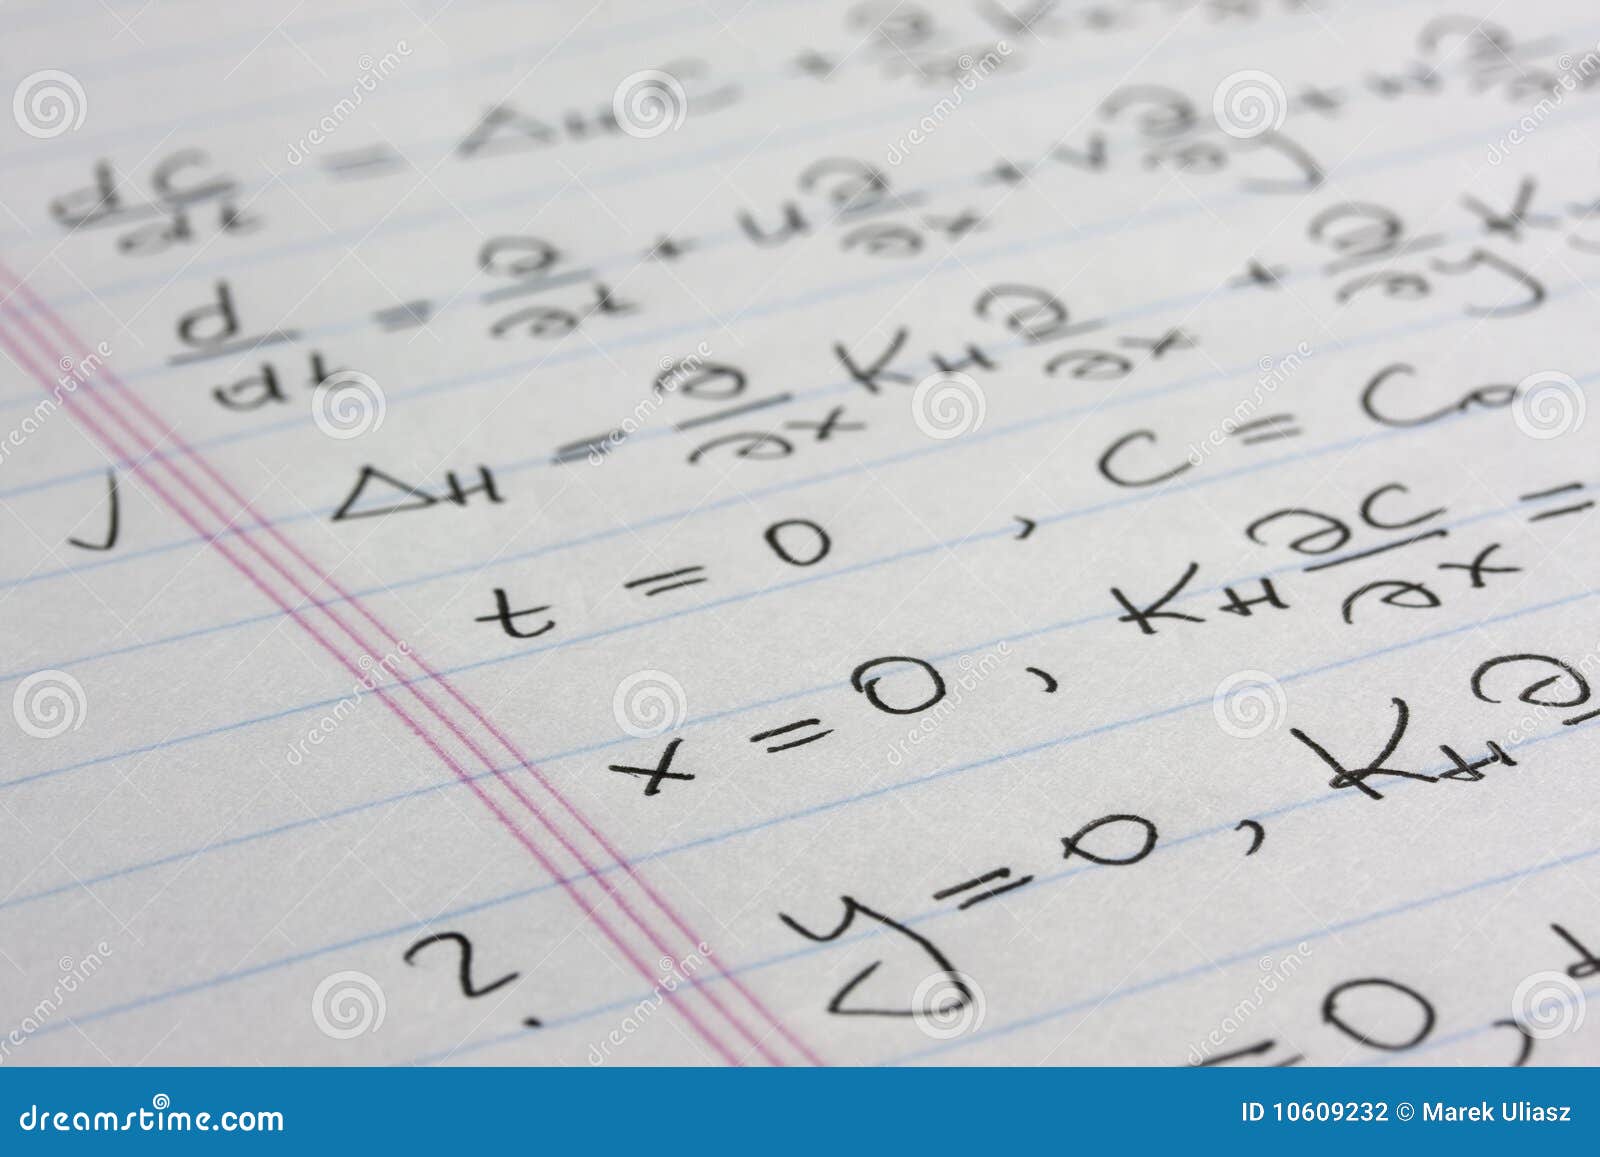 dc/dt = ΔHC + ∂
d/dt = ∂/∂t + u ∂/∂x + v ∂/∂y + w ∂
√ ΔH = ∂/∂x KH ∂/∂x + ∂/∂y K
t = 0 , C = C0
x = 0 , KH ∂C/∂x =
y = 0 , KH ∂
? = 0 ,
dreamstime.com
ID 10609232 © Marek Uliasz